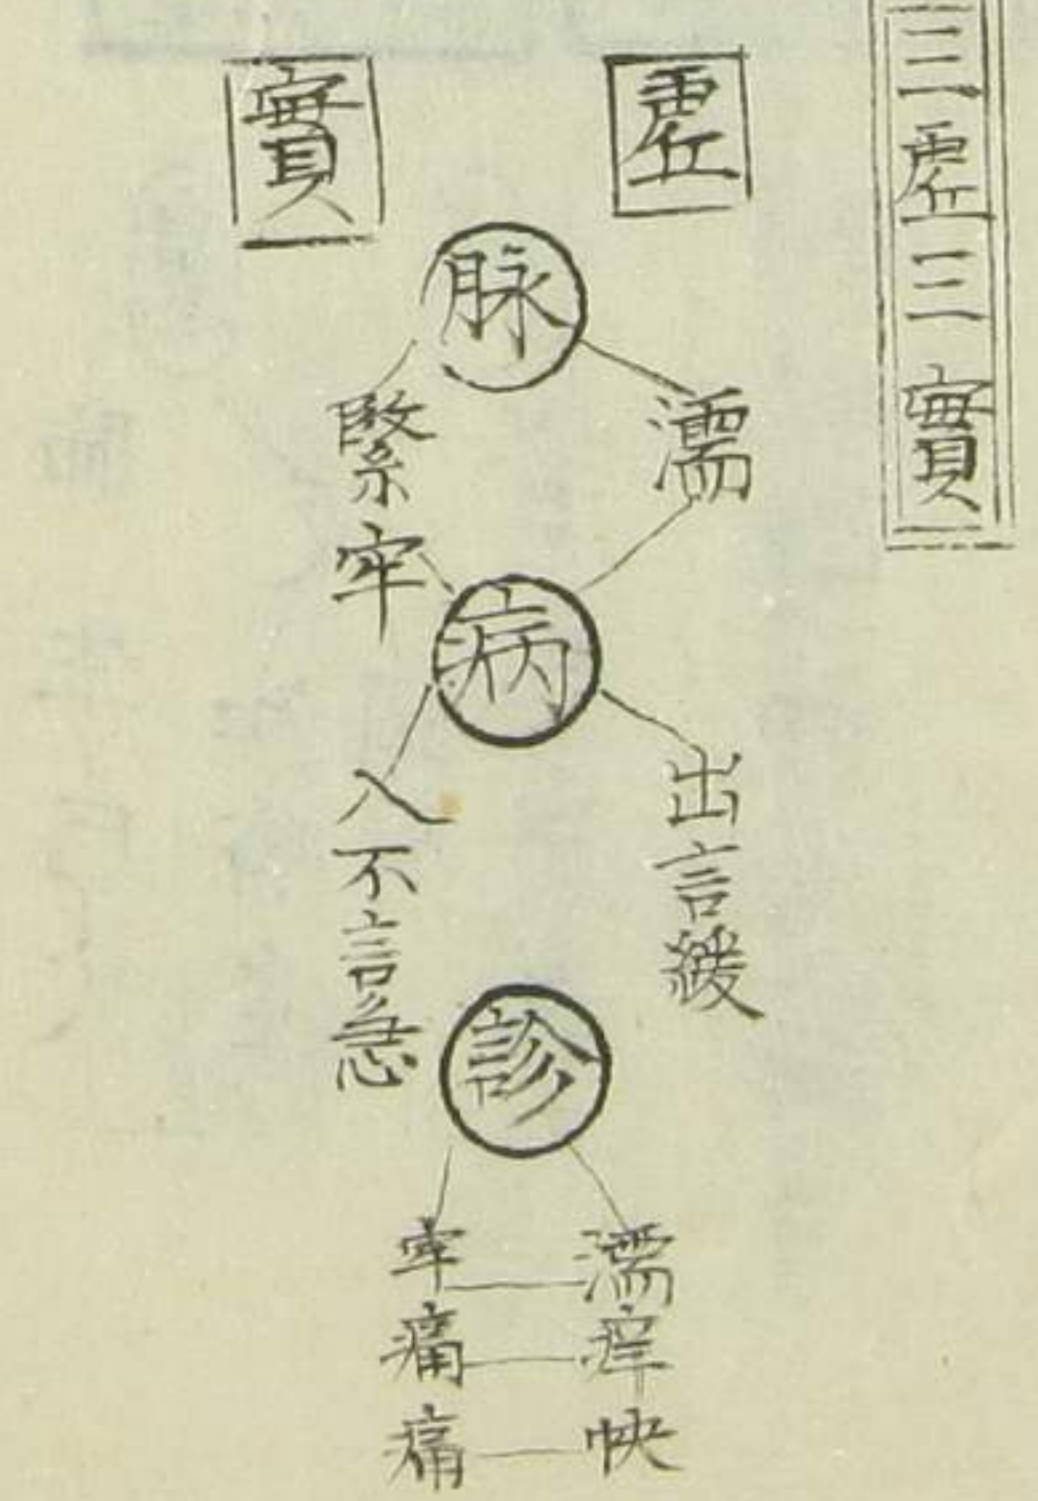 三虛三實
虛
實
脉
濡
緊牢
病
出言緩
入不言急
診
濡
牢
痒
痛
快
痛